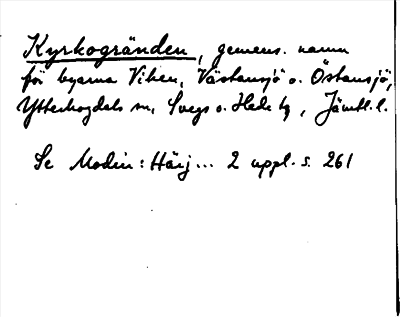 Kyrkogränden, gemens. namn
för byarna Viken, Västansjö o. Östansjö,
Ytterhogdals sn, Svegs o. Hede tg, Jämtl. l.
Se Modin: Härj... 2 uppl. s. 261